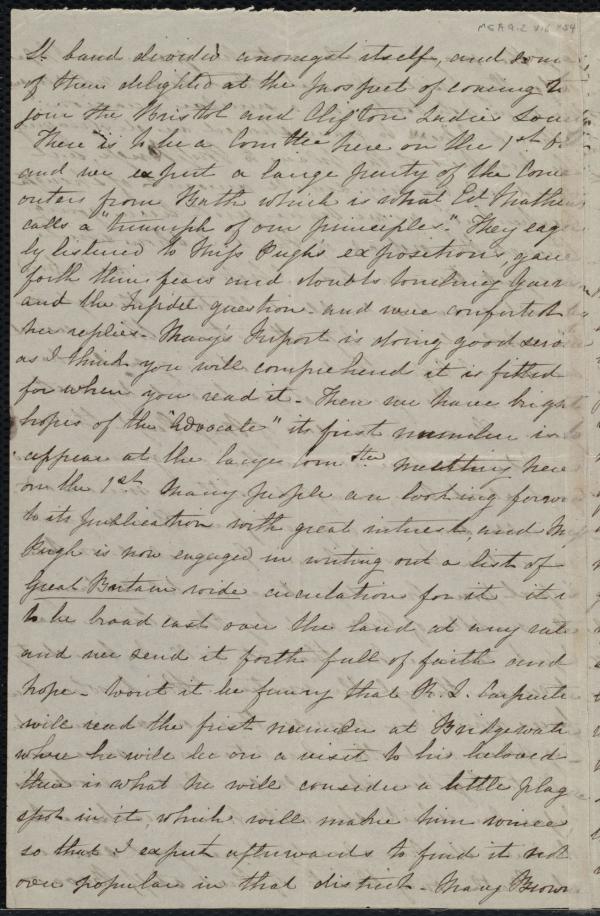 MS A 9.2 v.26 p.54
st band divided amongst itself, and som
of them delighted at the prospect of coming to
join the Bristol and Clifton Ladies Soc
There is to be a Com:ttee here on the 1st
and we expect a large party of the Come
outers from Bath which is what Ed. Mathew
calls a "triumph of our principles." They eag
ly listened to Miss Pugh's expositions, gave
forth their fears and doubts touching Garr
and the Infidel question and were comforted
her replies. Mary's Report is doing good serv
as I think you will comprehend it is fitted
for when you read it - Then we have bright
hopes of the "Advocate" its first number is to
appear at the large com:ttee meeting here
on the 1st Many people are looking forw
to its publication with great interest, and M
Pugh is now engaged in writing out a list of
Great Britain wide circulation for it it i
to be broad cast over the land at any rate
and we send it forth full of faith and
hope - Wont it be funny that R. L. Carpente
will read the first number at Bridgewate
where he will be on a visit to his beloved
there is what he will consider a little plag
spot in it, which will make him wince
so that I expect afterwards to find it not
over popular in that district - Mary Brown